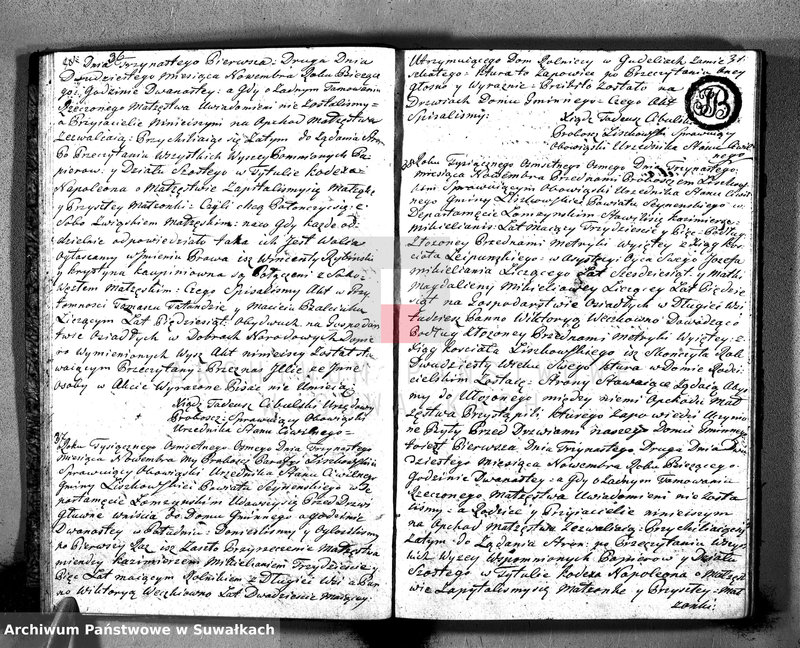 36
Dnia Trzynastego Pierwsza: Druga Dnia
Dwudziestego Miesiąca Nowembra Roku Bieżące
go: Godzinie Dwanastey: a Gdy o Żadnym Tamowaniu
Rzeczonego Małżeństwa Uwiadomieni nie Zostalismy
a Przyiaciele Ninieyszym na Obchod Małżeństwa
Zezwalaią: Przychilaiąc się Zatym do Żądania Stron
Po Przeczytaniu Wszystkich Wyzey Pomnionych Pa
pierow: y Działu Szostego w Tytule Kodexa
Napoleona o Małżeństwie Zapitalismy się
y Przyszłey Małżonki: Czyli chcą Połończyć się: z
Sobą Związkiem Małżeńskim: naco Gdy każde od
dzielnie odpowiedziało taka ich Jest Wola
Ogłaszamy w Imieniu Prawa isz Wincenty
y Krystyna są Połączeni z Sobą
Węzłem Małżeńskim: Czego Spisalismy Akt w Przy
tomnosci y Macieia
Liczącym Lat Piędziesiąt: Obydwuch na Gospodar
stwie Osiadłych w Dobrach Narodowych
ro Wymienionych Wysz Akt ninieyszy Został Sta
waiącym Przeczytany Przeznas Jllic ze Jnne
Osoby w Akcie Wyrażone Pisać nie Umieią
Xiądz Tadeusz Cibulski Urzędowy
Proboszcz Sprawuiący Obowiąski
Urzednika Stanu Ciwilnego
37
Roku Tysiącznego Osmsetnego Osmego Dnia Trzynastego
Miesiąca Nowembra My Proboszcz Parafii Liszkowskiey
Sprawuiący Obowiąski Urzednika Stanu Ciwilnego
Gminy Liszkowskiey Powiatu Seynenskiego w De
partamęcie Łomzynskim Udawszy się Przed Drzwi
Głuwne waiscia do Domu Gminnego o godzinie
Dwanastey w Południe: Doniesliśmy y Ogłosilismy
po Pierwszy Raz isz Zaszło Przyrzeczenie Małżeństwa
miendzy Kazimierzem Mikielianiem Trzydziescie y
Pięc Lat maiącym Rolnikiem z Długiey Wsi a Pan
no Wiktoryą Wechowno Lat Dwadziescie maiącey
Utrzymuiącego Dom Rolniczy w Gudeliach Zamie
szkałego: ktura to Zapowiedz po Przeczytaniu oney
głosno y Wyraznie: Przibito Została na
Drzwiach Domu Gminnego: Czego Akt
Spisalismy:
Xiądz Tadeusz Cibulski
Probosz Liszkowski Sprawuiący
Obowiąski Urzednika Stanu Ciwil
nego
38
Roku Tysiącznego Osmsetnego Osmego Dnia Trzynastego:
miesiąca Nowembra Przednami Proboszczem Liszkow
skim Sprawuiącym Obowiąski Urzednika Stanu Ciwil
nego Gminy Liszkowskiey Powiatu Seynenskiego w
Departamęcie Łomzynskim Stawił się Kazimierz
Mikielianis: Lat Maiący Trzydziescie y Pięc: Podług
Złozoney Przednami Metryki Wyiętey z Xiąg Kos
cioła Leipunskiego: w Assystęcy Oyca Swego Jozefa
Mikieliania Liczącego Lat Szeszdziesiąt: y Matki
Magdaleny Mikielianiowey Liczącey Lat Pięcdzie
siąt na Gospodarstwie Osiadłych w Długiey Wsi
Tudziesz Panno Wiktoryą Wechowno Dowodząco
Podług Złozoney Przednami Metryki Wyiętey: z
Xiąg Koscioła Liszkowskiego isz Skonczyła Rok
Dwudziesty Wieku Swego ktura w Domie Rodzi
cielskim Zostaie: Strony Stawaiące Żądaią Aby
my do Ułozonego między niemi Obchodu Mał
żenstwa Przystąpili: kturego Zapowiedzi Uczynio
ne Były Przed Drzwiami naszego Domu Gminnego
toiest Pierwsza Dnia Trzynastego Druga Dnia Dwu
dziestego Miesiąca Nowembra Roku Bieżącego
Godzinie Dwanastey: a Gdy o Żadnym Tamowaniu
Rzeczonego Małżeństwa Uwiadomieni nie Zosta
lismy: a Rodzice y Przyiaciele ninieyszym
na Obchod Małżeństwa Zezwalaią: Przychilaiąc się
Zatym do Żądania Stron: po Przeczytaniu Wszys
tkich Wyzey Wspomnionych Papierow y Działu
Szostego w Tytule Kodexa Napoleona o Małżeńst
wie Zapytalismy się Małżonka y Przyszłey: Mał
żonki:
Archiwum Państwowe w Suwałkach